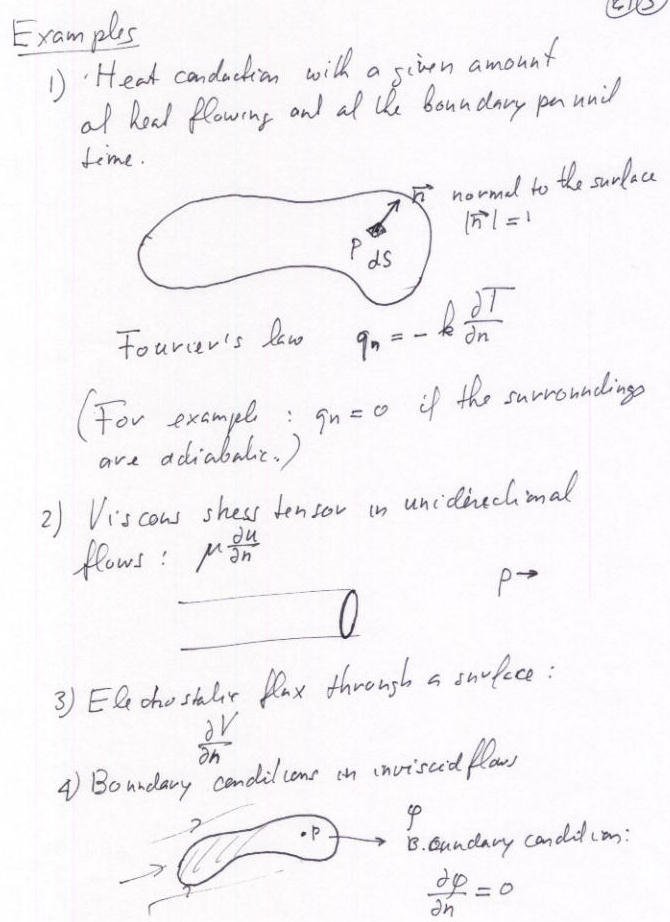 Examples
1) Heat conduction with a given amount
of heat flowing out at the boundary per unit
time.
n⃗ normal to the surface
|n⃗| = 1
P
dS
Fourier's law qₙ = - k ∂T/∂n
(For example : qₙ = 0 if the surroundings
are adiabatic.)
2) Viscous stress tensor in unidirectional
flows : μ ∂u/∂n
p→
3) Electrostatic flux through a surface :
∂V/∂n
4) Boundary conditions in inviscid flows
φ
•P
B.oundary condition:
∂φ/∂n = 0